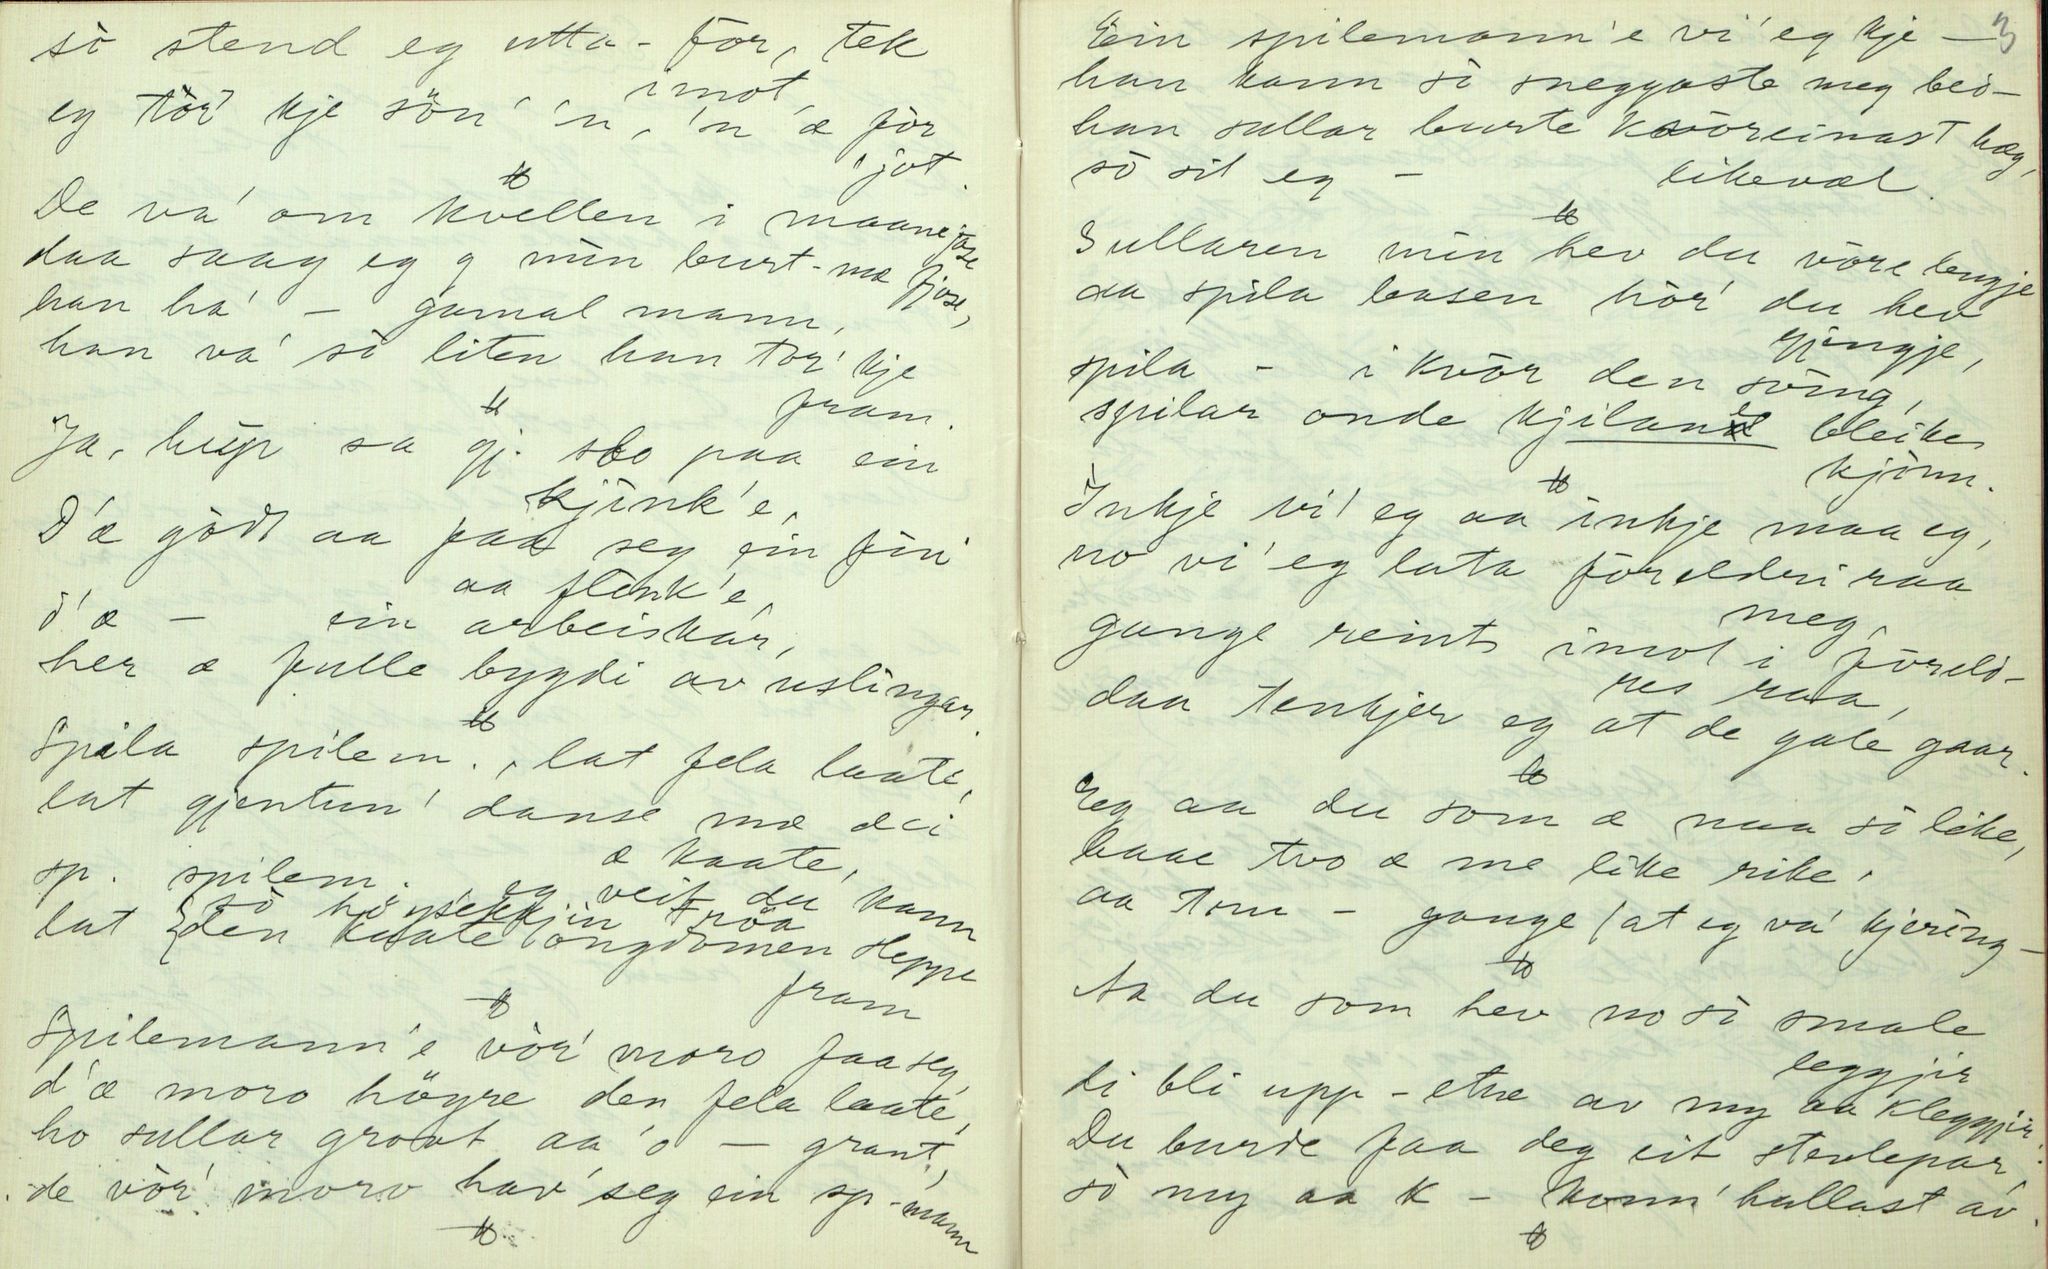 sò stend eg utta-for, tek
imot,
eg tòr' kje sön' 'n, 'n' æ för
'jot.
De va' om kvellen i maanejose
daa saag eg g min burt-mæ fjose,
han ha' – gamal mann,
han va' sò liten han tor' kje
fram.
Ja, hup sa gj. slo paa ein
kjink'e,
D'æ gödt aa faa seg ein fin
aa flink'e,
d'æ – ein arbeiskar,
her æ fulle bygdi av uslingar.
Spila spilem., lat fela laate,
lat gjentun' danse mæ dei
æ kaate,
sp. spilem. eg veit du kann
sò högsekkjin tröa
lat {den kaate ongdomen sleppe
fram
Spilemann'e vòr' moro faa seg,
d'æ moro högre den fela laate,
ho sullar grovt aa'o – grant,
de vòr' moro hav' seg ein sp-mann
3
Ein spilemann'e vi' eg kje –
han kann sò sneggaste meg bed-
han sullar burte kvòreinast hæg,
sò sit eg – likevæl
Sullaren min hev du vòre lengje
aa spila basen hòr' du hev
gjengje,
spila – i kvòr den söing,
spilar onde kjilane bleike
kjönn.
Inkje vi' eg aa inkje maa eg,
no vi' eg lata foreldri raa
meg,
gange reint imot i foreld-
res raa,
daa tenkjer eg at de gale gaar.
Eg aa du som æ naa sò like,
baae tvo æ me like rike.
aa tom – gange (at eg va' kjering –
Aa du som hev no sò smale
leggjir
di bli upp-etne av my aa kleggjir.
Du burde faa deg eit stevlepar,
sò my aa k – kunn' hallast av.